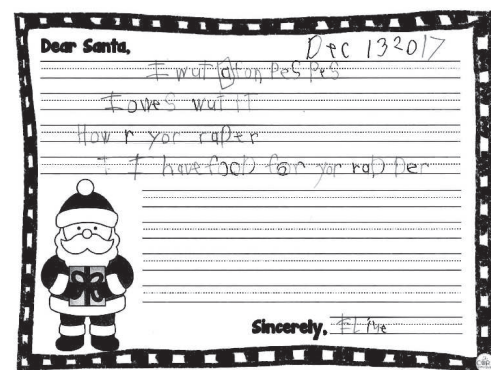 Dear Santa,
Dec 13 2017
I wut a ton Pes Pes
I owes wut IT
How r yor raDer
I I have fooD for yor raD Der
Sincerely,